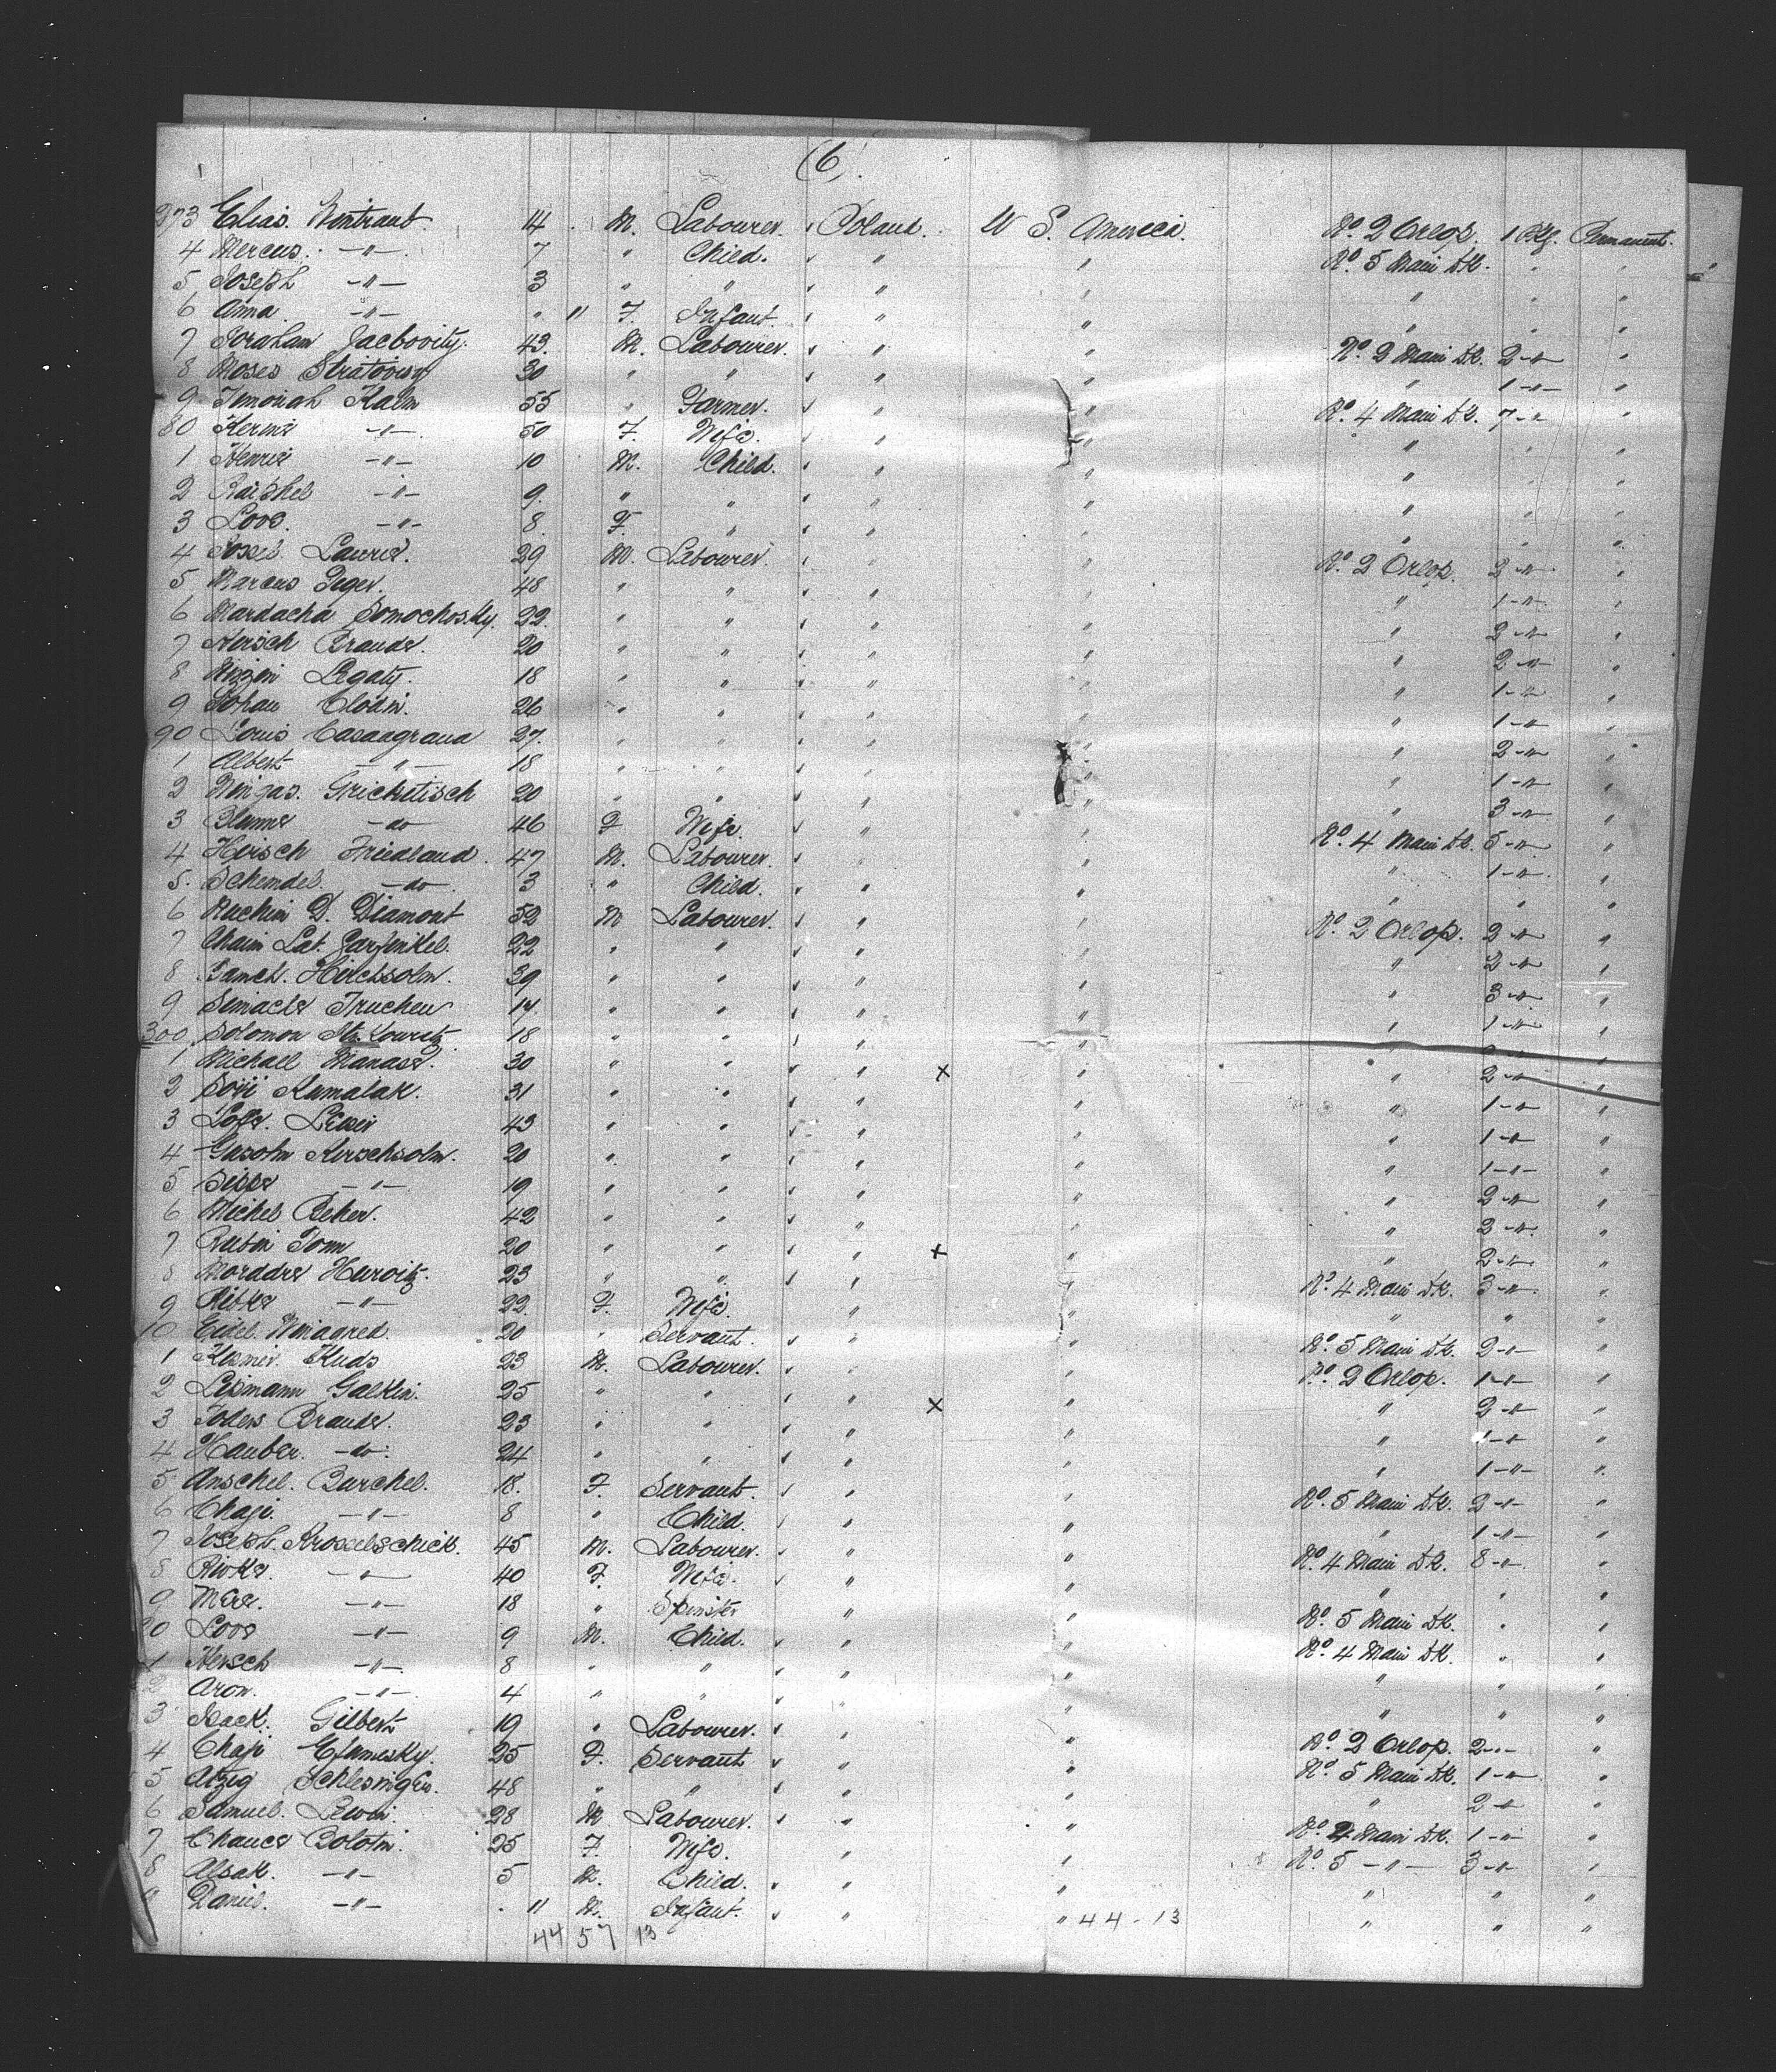 (6).
273 Elias. Wintraub. 14 M. Labourer. Poland. U S. America. No. 2 Orlop. 1 Pkg. Permanent.
4 Mercus. -"- 7 " Child. " " No. 5 Main Dk. " "
5 Joseph -"- 3 " " " " " " "
6 Anna. -"- " 11 F. Infant. " " " " "
7 Abraham Jacbovity. 43. M. Labourer. " " No. 2 Main Dk. 2-"- "
8 Moses 30 " " " " " 1-"- "
9 Kalm 55 " Farmer. " " No. 4 Main Dk. 7-"- "
80 -"- 50 F. Wife. " " " " "
1 -"- 10 M. Child. " " " " "
2 Raiphel -"- 9. " " " " " " "
3 Loos. -"- 8. F. " " " " " "
4 Laurie. 29 M. Labourer. " " No. 2 Orlop. 2-"- "
5 Marcus Geger. 48 " " " " " 1-"- "
6 Mardacha Somochosky. 22. " " " " " 2-"- "
7 Hersch Brande. 20 " " " " " 2-"- "
8 Legaty. 18 " " " " " 1-"- "
9 Johan Clodin. 26 " " " " " 1-"- "
90 Louis Casangrana 27. " " " " " 2-"- "
1 Albert -"- 18 " " " " " 1-"- "
2 Grickitisch 20 " " " " " 3-"- "
3 Blume -do- 46 F Wife. " " No. 4 Main Dk. 5-"- "
4 Hersch Friedland. 47 M. Labourer. " " " 1-"- "
5. Schemdel. -do- 3 " Child. " " " " "
6 Ruchim D. Diamont 52 M Labourer. " " No. 2 Orlop. 2-"- "
7 Chaim Lat. Garfinkel. 22 " " " " " 2-"- "
8 Hirchsolm. 39 " " " " " 3-"- "
9 Truchen 17. " " " " " 1-"- "
300 Solomon 18 " " " " " "
1 Michall Manase. 30 " " " x " " 2-"- "
2 Kumalak. 31 " " " " " 1-"- "
3 Lewin 43 " " " " " 1-"- "
4 Gasohn Kerschsolm. 20 " " " " " 1-"- "
5 -"- 19 " " " " " 2-"- "
6 Michel Beker. 42 " " " " " 2-"- "
7 Rubin Tom 20 " " " x " " 2-"- "
8 Morddre Huroitz. 23 " " " " No. 4 Main Dk. 3-"- "
9 Ribke -"- 22. F. Wife. " " " " "
10 Eidel. Winagred. 20 " Servant. " " No. 5 Main Dk. 2-"- "
1 Kuds 23 M. Labourer. " " No. 2 Orlop. 1-"- "
2 Lipmann Galkin. 25 " " " x " " 2-"- "
3 Toders Brande. 23 " " " " " 1-"- "
4 Hauber. -do- 24 " " " " " 1-"- "
5 Anschel. Burchel. 18. F. Servant. " " No. 5 Main Dk. 2-"- "
6 Chaji. -"- 8 " Child. " " " 1-"- "
7 Joseph. Krosselschick. 45 M. Labourer. " " No. 4 Main Dk. 8-"- "
8 Rivke. -"- 40 F. Wife. " " " " "
9 -"- 18 " Spinster " " No. 5 Main Dk. " "
20 Loos -"- 9 M. Child. " " No. 4 Main Dk. " "
1 Hersch -"- 8 " " " " " " "
2 Aron. -"- 4 " " " " " " "
3 Isack. Gilbert 19 " Labourer. " " No. 2 Orlop. 2-"- "
4 Chaji 25 F. Servant " " No. 5 Main Dk. 1-"- "
5 Schlesinger. 48 " " " " " 2-"- "
6 Samuel. Lewin. 28 M Labourer. " " No. 2 Main Dk. 1-"- "
7 Chance Bolotin. 25 F. Wife. " " No. 5 -"- 3-"- "
8 Alsak. -"- 5 M. Child. " " " " "
9 Daniel. -"- 11 M. Infant. " " " " "
44 57 13 44-13